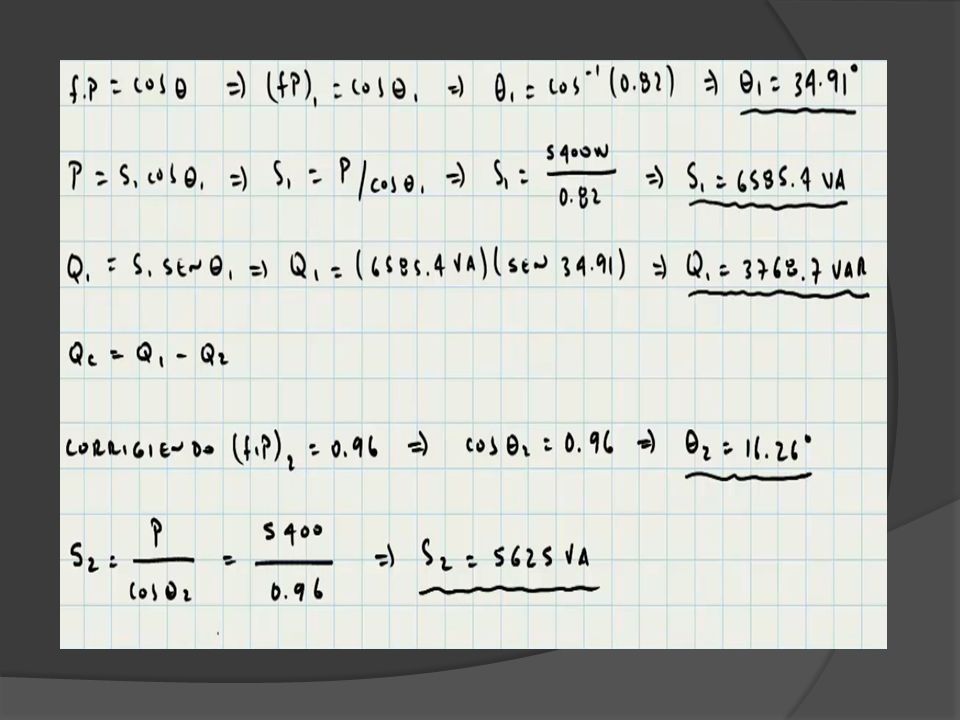 f.P = cos θ ⇒ (fP)₁ = cos θ₁ ⇒ θ₁ = cos⁻¹ (0.82) ⇒ θ₁ = 34.91°
P = S₁ cos θ₁ ⇒ S₁ = P/cos θ₁ ⇒ S₁ = 5400W / 0.82 ⇒ S₁ = 6585.4 VA
Q₁ = S₁ SEN θ₁ ⇒ Q₁ = (6585.4 VA)(SEN 34.91) ⇒ Q₁ = 3768.7 VAR
Qc = Q₁ - Q₂
CORRIGIENDO (f.P)₂ = 0.96 ⇒ cos θ₂ = 0.96 ⇒ θ₂ = 16.26°
S₂ = P / cos θ₂ = 5400 / 0.96 ⇒ S₂ = 5625 VA